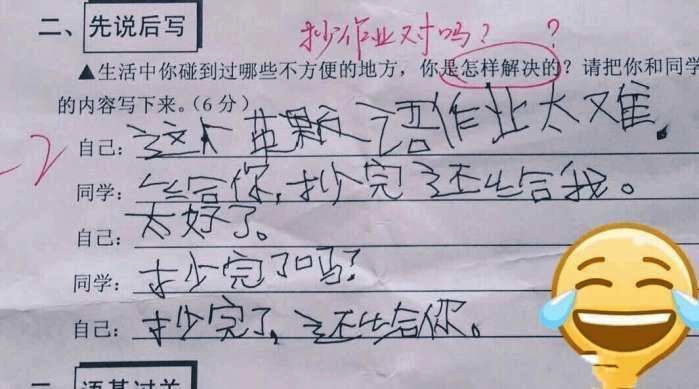 二、先说后写
抄作业对吗？？
▲生活中你碰到过哪些不方便的地方，你是怎样解决的？请把你和同学
的内容写下来。（6分）
-2
自己：这个苹颗语作业太难。
同学：给你，抄完还给我。
自己：太好了。
同学：抄完了吗？
自己：抄完了，还给你。